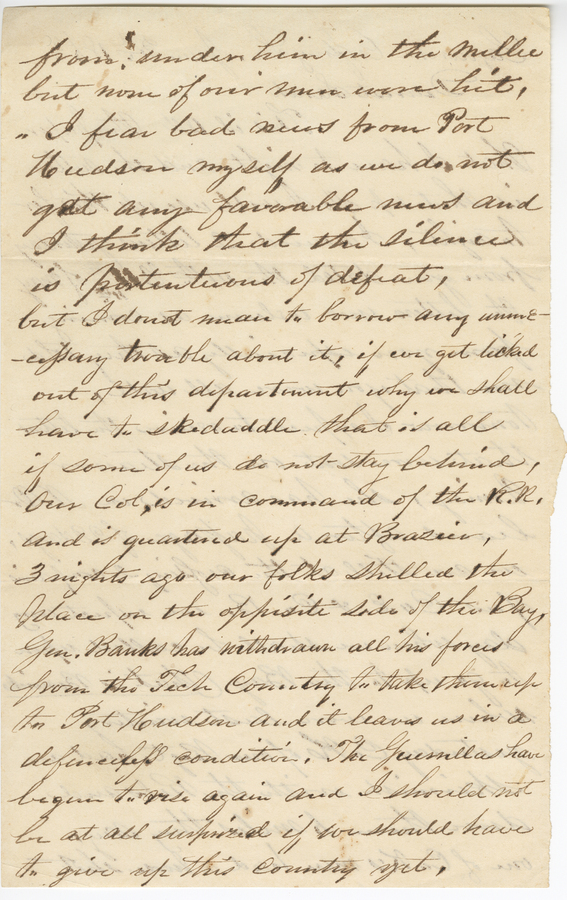 from under him in the mellee
but none of our men were hit,
" I fear bad news from Port
Hudson myself as we do not
get any favorable news and
I think that the silence
is portentious of defeat,
but I donot mean to borrow any unne-
-cessary trouble about it, if we get licked
out of this department why we shall
have to skedaddle that is all
if some of us do not stay behind,
Our Col, is in command of the R.R.
and is quartered up at Brazier,
3 nights ago our folks shelled the
place on the opposite side of the Bay,
Gen. Banks has withdrawn all his forces
from the Tech Country to take them up
to Port Hudson and it leaves us in a
defenceless condition. The Guerrillas have
begun to rise again and I should not
be at all surprized if we should have
to give up this country yet.